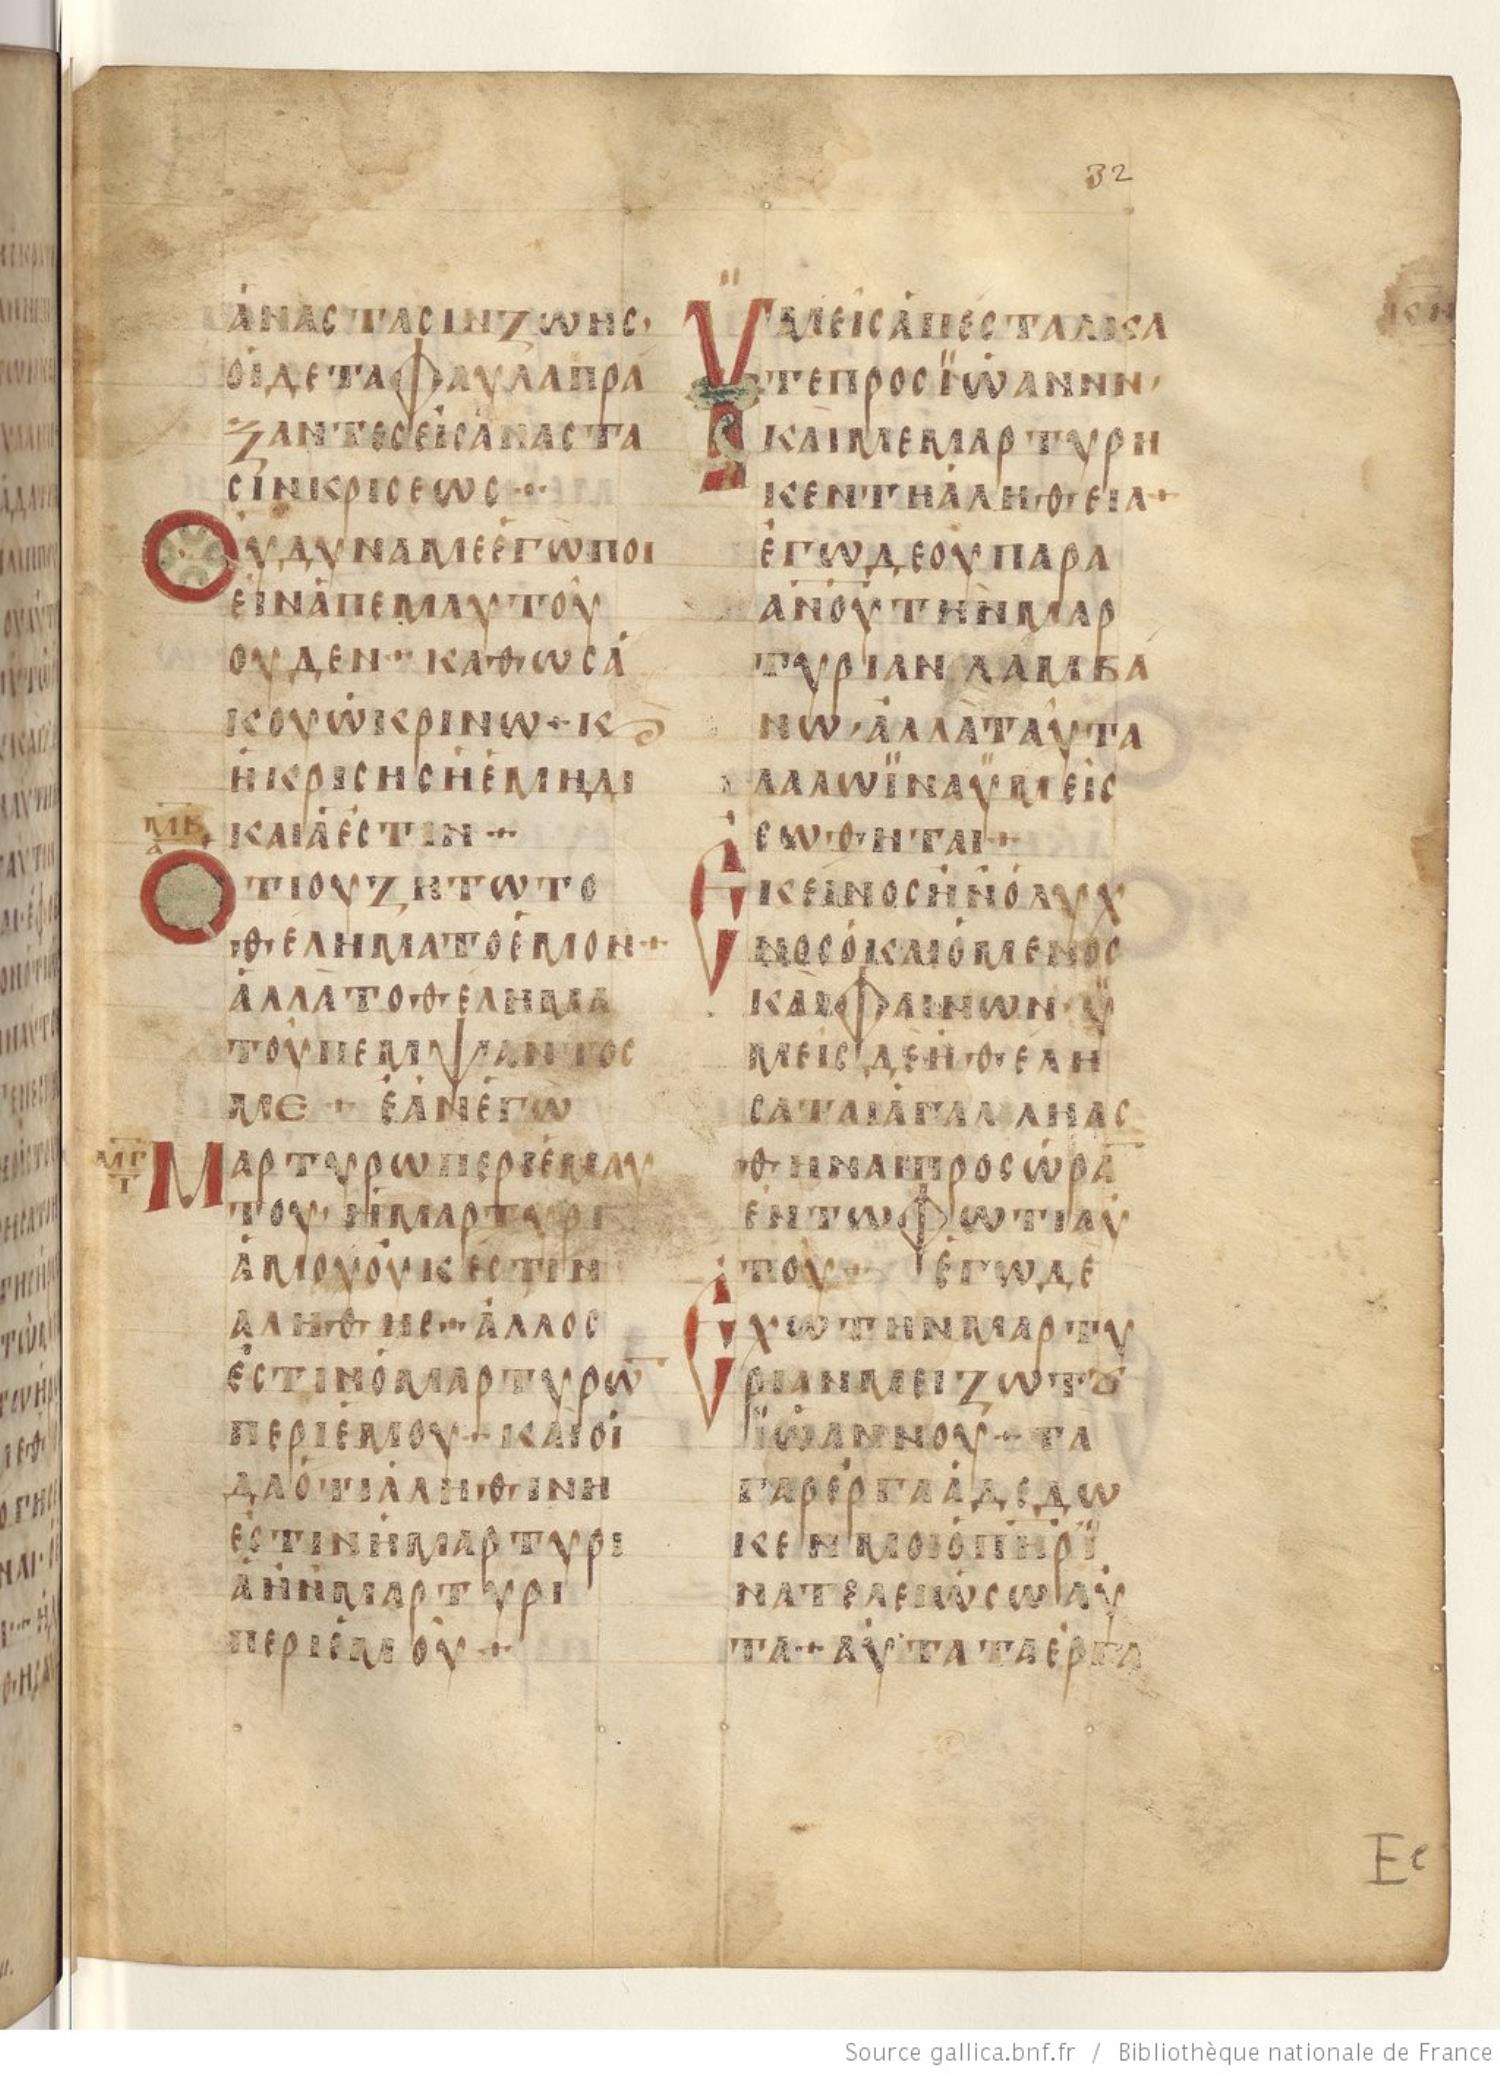 32
ἀΝΑСΤΑСΙΝΖΩΗС,
ΟἱΔΕΤΑΦΑΥΛΑΠΡΑ
ΞΑΝΤΕСΕἰСἀΝΑСΤΑ
СΙΝΚΡΙСΕΩС+
ΟΥΔΥΝΑΜΕἐΓΩΠΟΙ
ΕΙΝἀΠΕΜΑΥΤΟΥ
ΟΥΔΕΝ+ΚΑΘΩСἀ
ΚΟΥΩΚΡΙΝΩ+Κ
ἡΚΡΙСΗСἡἐΜΗΔΙ
ΜΒ
Α
ΚΑΙΑἐСΤΙΝ+
ΟΤΙΟΥΖΗΤΩΤΟ
ΘΕΛΗΜΑΤΟἐΜΟΝ+
ἀΛΛΑΤΟΘΕΛΗΜΑ
ΤΟΥΠΕΜΨΑΝΤΟС
ΜΕ+ἐΑΝἐΓΩ
ΜΓ
Γ
ΜΑΡΤΥΡΩΠΕΡΙἐΜΑΥ
ΤΟΥ,ἡΜΑΡΤΥΡΙ
ἀΜΟΥΟΥΚἐСΤΙΝ
ἀΛΗΘΗС+ἀΛΛΟС
ἐСΤΙΝὁΜΑΡΤΥΡΩ̅
ΠΕΡΙἐΜΟΥ+ΚΑΙΟἰ
ΔΑὁΤΙἀΛΗΘΙΝΗ
ἐСΤΙΝἡΜΑΡΤΥΡΙ
ἀἡΝΜΑΡΤΥΡΙ
ΠΕΡΙἐΜΟΥ+
ΥΜΕΙСἀΠΕСΤΑΛΚΑ
ΤΕΠΡΟСΪΩΑΝΝΗΝ,
ΚΑΙΜΕΜΑΡΤΥΡΗ
ΚΕΝΤΗἀΛΗΘΕΙΑ+
ἐΓΩΔΕΟΥΠΑΡΑ
ἀΝ̅Ο̅Υ̅ΤΗΝΜΑΡ
ΤΥΡΙΑΝΛΑΜΒΑ
ΝΩ,ἀΛΛΑΤΑΥΤΑ
ΛΑΛΩΪΝΑΫΜΕΙС
СΩΘΗΤΑΙ+
ΕΚΕΙΝΟСἡΝὁΛΥΧ
ΝΟСὁΚΑΙὁΜΕΝΟС
ΚΑΙΦΑΙΝΩΝ·Ϋ
ΜΕΙСΔΕἠΘΕΛΗ
СΑΤΑΙἀΓΑΛΛΗΑС
ΘΗΝΑΙΠΡΟСὡΡΑ̅
ἐΝΤΩΦΩΤΙΑΥ
ΤΟΥ+ἐΓΩΔΕ
ΕΧΩΤΗΝΜΑΡΤΥ
ΡΙΑΝΜΕΙΖΩΤȢ
ΪΩΑΝΝΟΥ+ΤΑ
ΓΑΡἐΡΓΑἁΔΕΔΩ
ΚΕΝΜΟΙὁΠ̅Η̅Ρ̅Ϊ
ΝΑΤΕΛΕΙΩСΩΑΥ
ΤΑ+ΑΥΤΑΤΑἐΡΓΑ
Ee
Source gallica.bnf.fr / Bibliothèque nationale de France